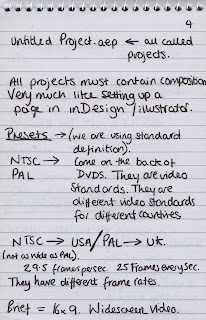 4
Untitled Project.aep ← all called
projects.
All projects must contain composition
Very much like setting up a
page in inDesign/illustrator.
Presets → (we are using standard
definition).
NTSC → Come on the back of
PAL DVDs. They are video
Standards. They are
different video standards
for different countries
NTSC → USA/PAL → UK.
(not as wide as PAL)
29.5 frames per sec. 25 Frames every Sec.
They have different frame rates.
Brief = 16x9. Widescreen Video.